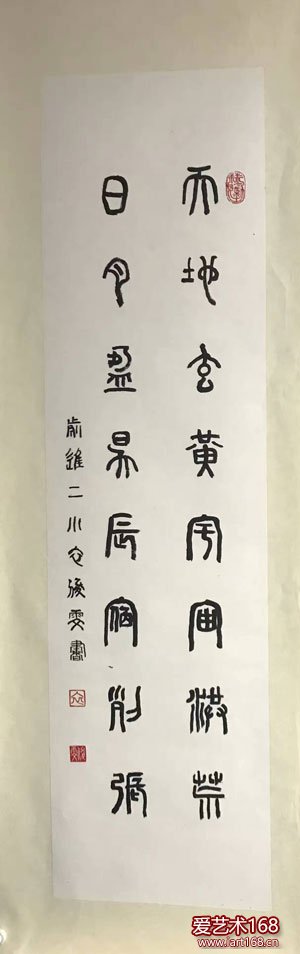 天地玄黄宇宙洪荒
日月盈昃辰宿列张
前进二小
书
爱艺术168
www.iart168.cn